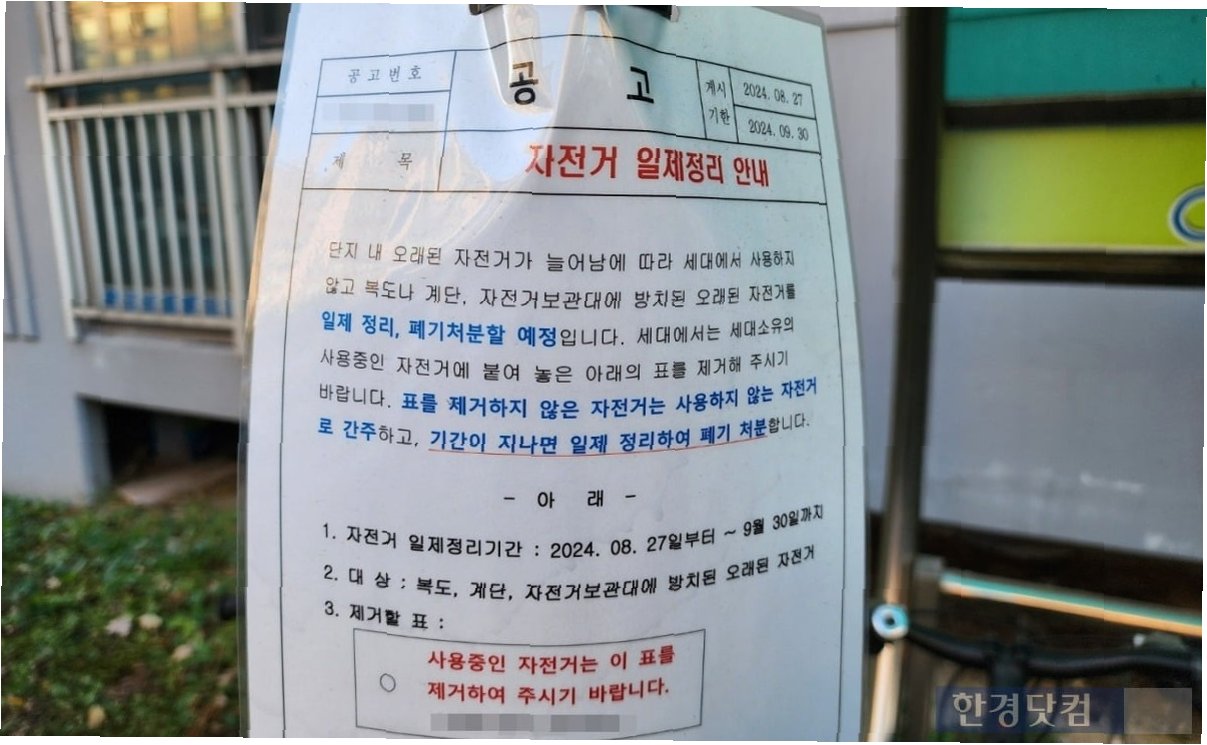 공고번호
공 고
게시
기한
2024. 08. 27
2024. 09. 30
제 목
자전거 일제정리 안내
단지 내 오래된 자전거가 늘어남에 따라 세대에서 사용하지
않고 복도나 계단, 자전거보관대에 방치된 오래된 자전거를
일제 정리, 폐기처분할 예정입니다. 세대에서는 세대소유의
사용중인 자전거에 붙여 놓은 아래의 표를 제거해 주시기
바랍니다. 표를 제거하지 않은 자전거는 사용하지 않는 자전거
로 간주하고, 기간이 지나면 일제 정리하여 폐기 처분합니다.
- 아 래 -
1. 자전거 일제정리기간 : 2024. 08. 27일부터 ~ 9월 30일까지
2. 대 상 : 복도, 계단, 자전거보관대에 방치된 오래된 자전거
3. 제거할 표 :
사용중인 자전거는 이 표를
제거하여 주시기 바랍니다.
한경닷컴